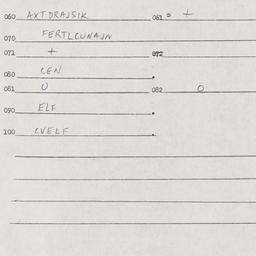 060 AXTDRAJSIK 061 = +
070 FERTLCUNAJN
071 + 072
080 CEN
081 0 082 0
090 ELF
100 CVELF